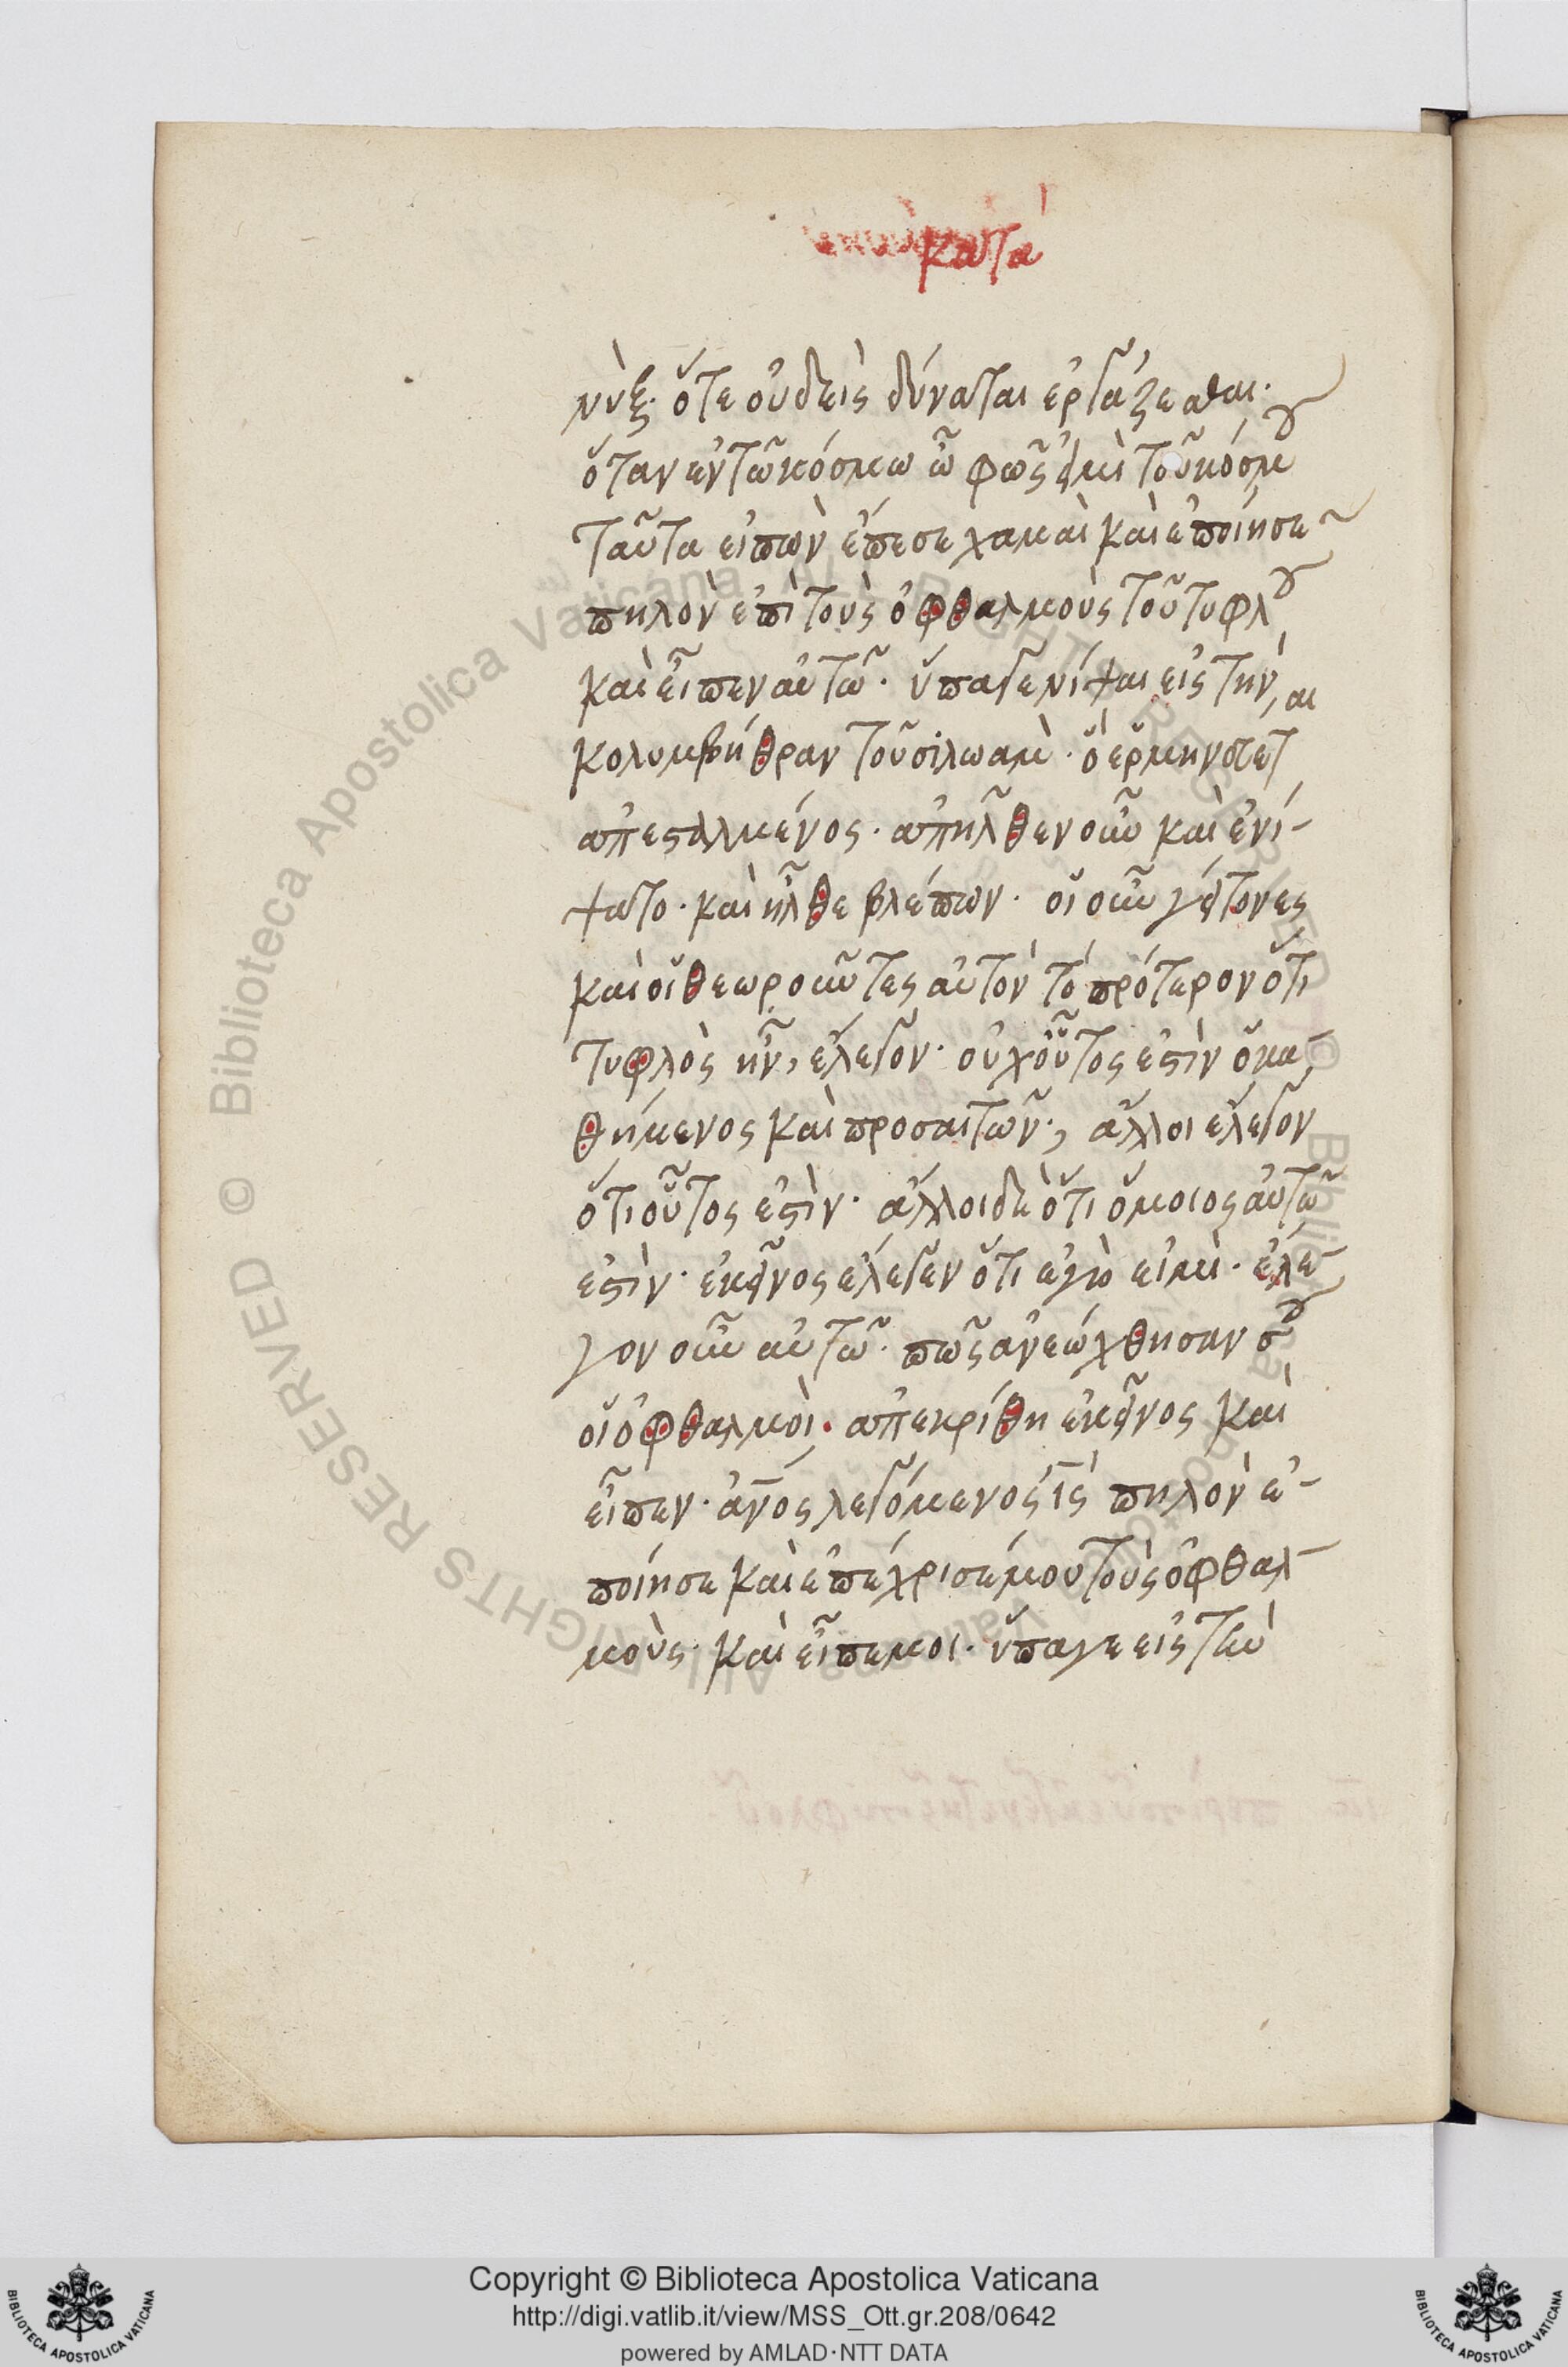 κατὰ
νὺξ· ὅτε οὐδεὶς δύναται ἐργάζεσθαι·
ὅταν ἐν τῶ κόσμω ὦ φῶς εἰμὶ τοῦ κόσμου
ταῦτα εἰπὼν ἔπεσε χαμαὶ καὶ ἐποίησε
πηλὸν ἐπὶ τοὺς ὀφθαλμοὺς τοῦ τυφλοῦ
καὶ εἶπεν αὐτῶ· ὕπαγε νίψαι εἰς τὴν
κολυμβήθραν τοῦ σιλωαμ· ὃ ἑρμηνεύεται
ἀπεσταλμένος· ἀπῆλθεν οὖν καὶ ἐνί-
ψατο· καὶ ἦλθε βλέπων· οἱ οὖν γείτονες
καὶ οἱ θεωροῦντες αὐτὸν τὸ πρότερον ὅτι
τυφλὸς ἦν, ἔλεγον· οὐχ οὗτος ἐστὶν ὁ κα-
θήμενος καὶ προσαιτῶν; ἄλλοι ἔλεγον
ὅτι οὗτος ἐστὶν· ἄλλοι δὲ ὅτι ὅμοιος αὐτῶ
ἐστὶν· ἐκεῖνος ἔλεγεν ὅτι ἐγὼ εἰμὶ· ἔλε-
γον οὖν αὐτῶ· πῶς ἀνεώχθησαν σοῦ
οἱ ὀφθαλμοὶ· ἀπεκρίθη ἐκεῖνος καὶ
εἶπεν· ἄν̅ος λεγόμενος ι̅ς πηλὸν ἐ-
ποίησε καὶ ἐπέχρισέ μου τοὺς ὀφθαλ-
μοὺς· καὶ εἶπε μοι· ὕπαγε εἰς τὴν
© Biblioteca Apostolica Vaticana ALL RIGHTS RESERVED
Copyright © Biblioteca Apostolica Vaticana
http://digi.vatlib.it/view/MSS_Ott.gr.208/0642
powered by AMLAD·NTT DATA
BIBLIOTECA APOSTOLICA VATICANA
BIBLIOTECA APOSTOLICA VATICANA